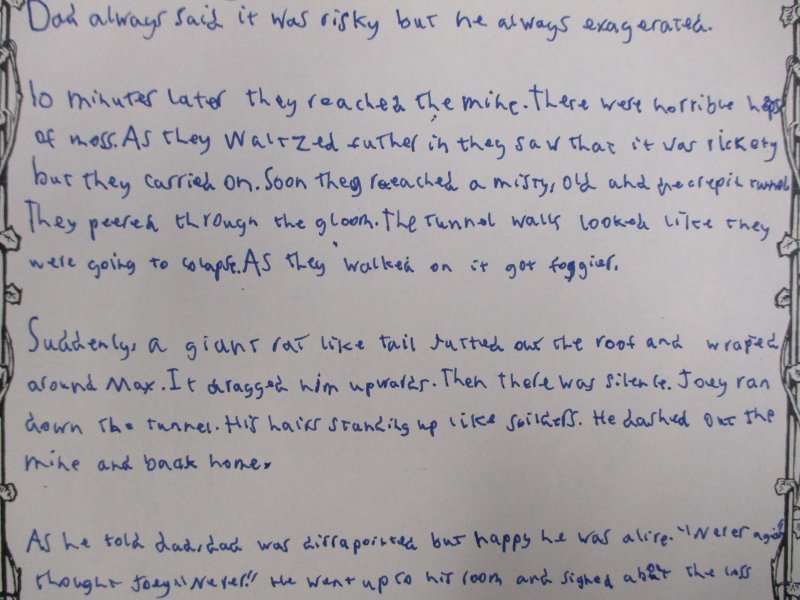 Dad always said it was risky but he always exagerated.
10 minutes later they reached the mine. There were horrible heaps
of moss. As they waltzed futher in they saw that it was rickety
but they carried on. Soon they reached a misty, old and decrepit tunnel
They peered through the gloom. The tunnel walls looked like they
were going to colapse. As they walked on it got foggier.
Suddenly, a giant rat like tail jutted out the roof and wraped
around Max. It dragged him upwards. Then there was silence. Joey ran
down the tunnel. His hairs standing up like soilders. He dashed out the
mine and back home.
As he told dad, dad was dissapointed but happy he was alive. "Never again"
thought Joey "Never!" He went up to his room and sighed about the loss